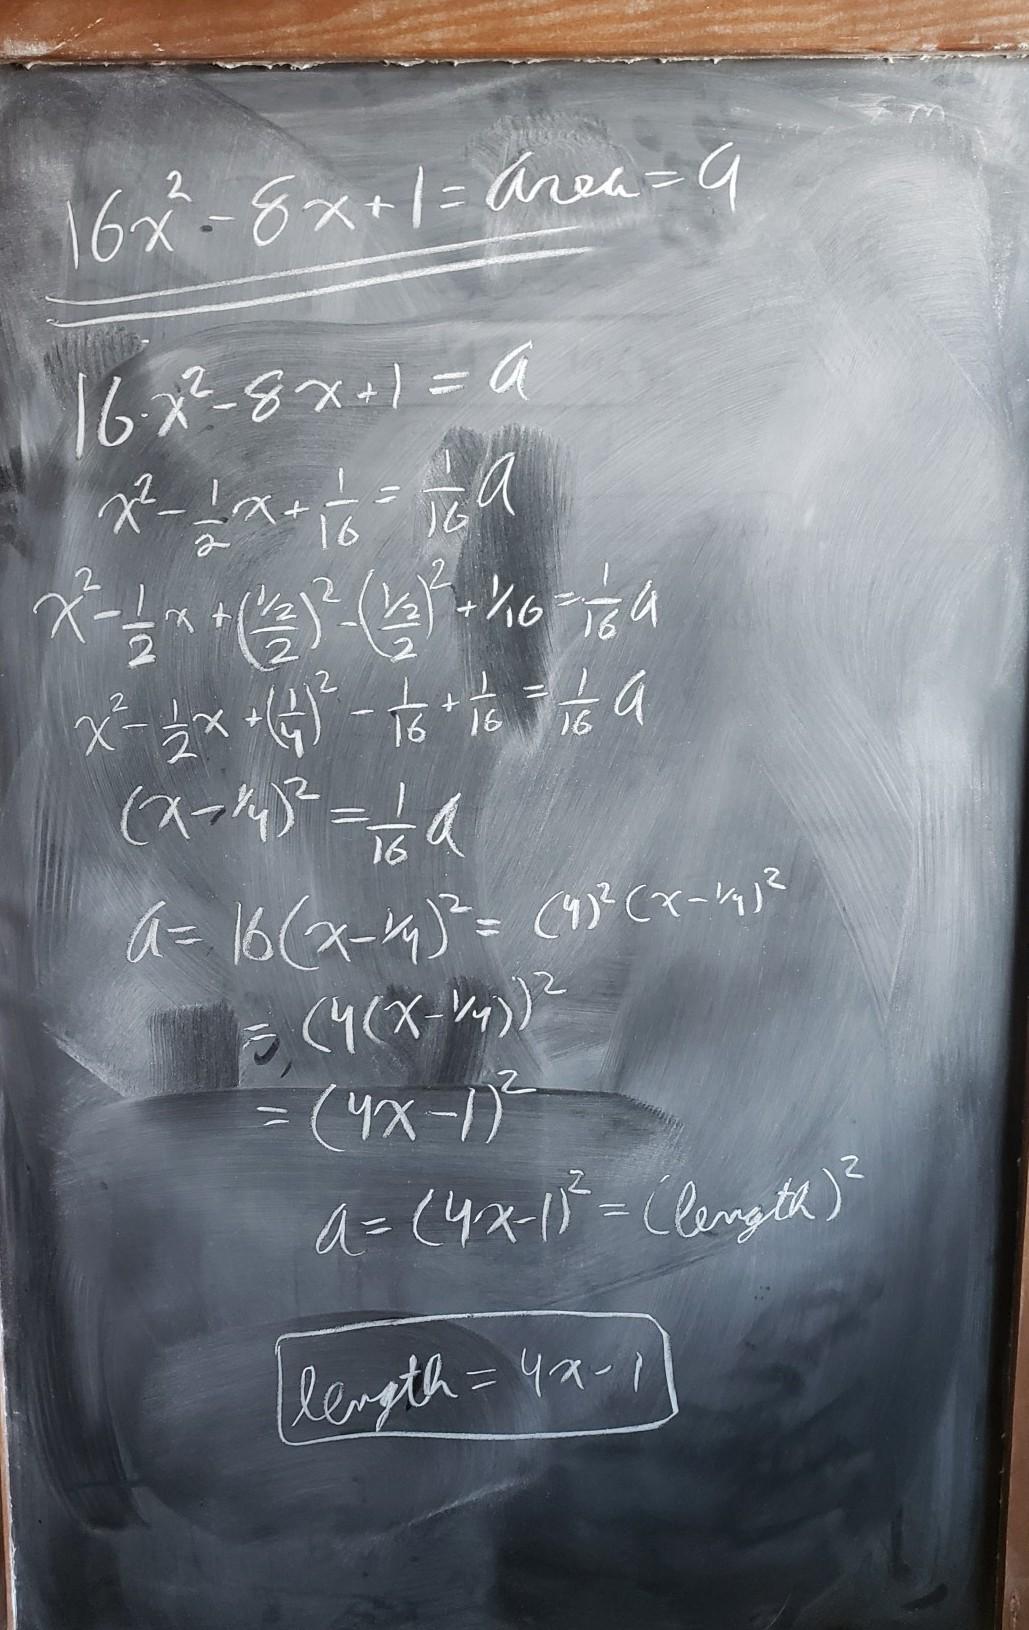 16x² - 8x + 1 = area = a
16·x² - 8x + 1 = a
x² - 1/2 x + 1/16 = 1/16 a
x² - 1/2 x + ((1/2)/2)² - ((1/2)/2)² + 1/16 = 1/16 a
x² - 1/2 x + (1/4)² - 1/16 + 1/16 = 1/16 a
(x - 1/4)² = 1/16 a
a = 16(x - 1/4)² = (4)² (x - 1/4)²
= (4(x - 1/4))²
= (4x - 1)²
a = (4x - 1)² = (length)²
length = 4x - 1